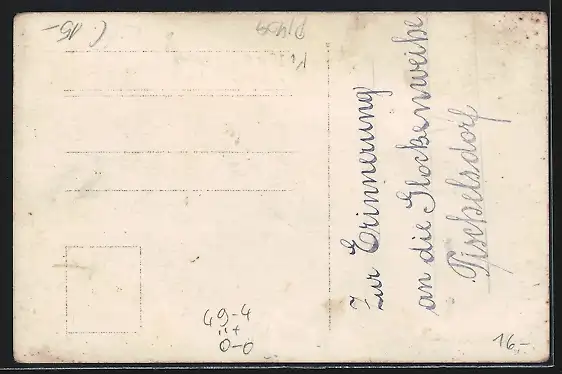 Zur Erinnerung
an die Glockenweihe
Pischelsdorf
15.-
49-4
ü+
0-0
16.-